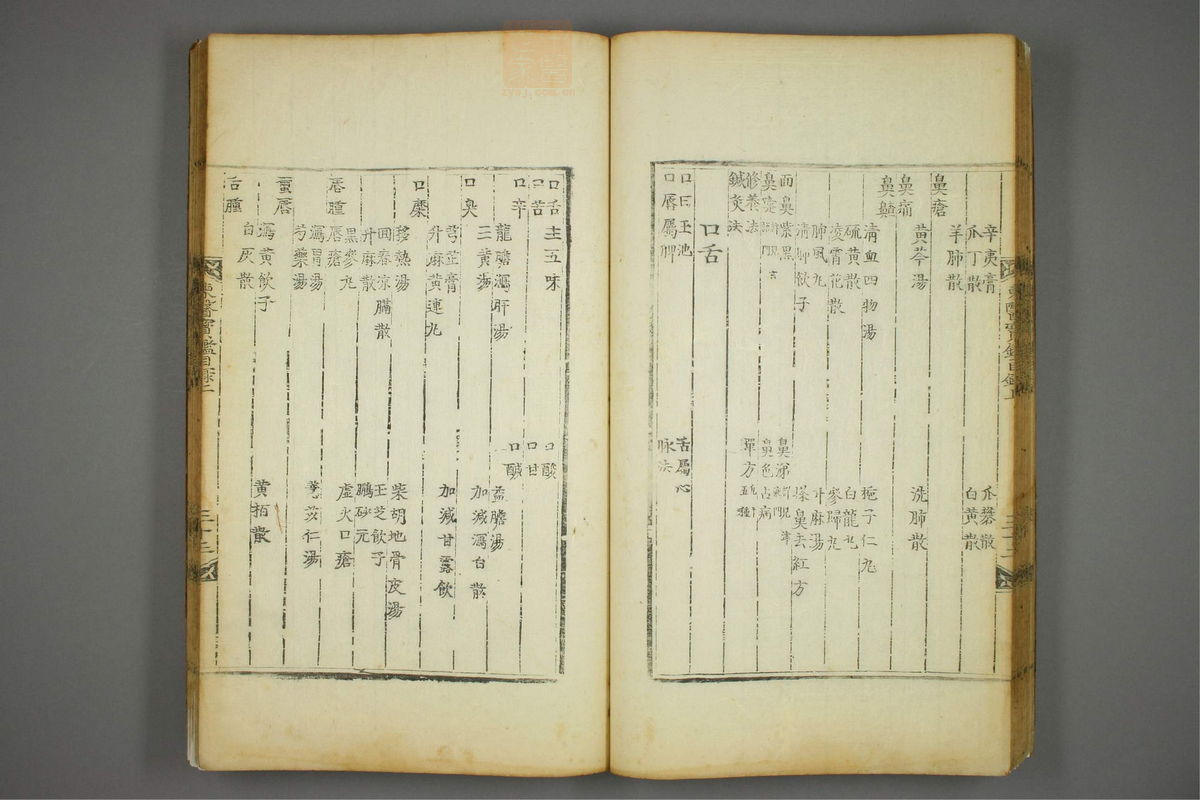 辛夷膏
爪礬散
爪丁散
白黃散
羊肺散
鼻瘡
黃芩湯
洗肺散
鼻痛
鼻齄
清血四物湯
梔子仁丸
硫黃散
白龍丸
凌霄花散
參歸丸
肺風丸
升麻湯
清肺飮子
搽鼻去紅方
面鼻紫黑
鼻涕
鼻塞
鼻色占病
修養法
單方
鍼灸法
口舌
口曰玉池
舌屬心
口脣屬脾
脉法
口舌主五味
口酸
口苦
口甘
口辛
口鹹
龍膽瀉肝湯
益膽湯
三黃湯
加減瀉白散
口臭
芎芷膏
加減甘露飮
升麻黃連丸
口糜
移熱湯
柴胡地骨皮湯
回春凉膈散
玉芝飮子
升麻散
鵬砂元
黑參丸
虛火口瘡
脣腫脣瘡
瀉胃湯
薏苡仁湯
芍藥湯
繭脣
瀉黃飮子
黃栢散
白灰散
舌腫
東醫寶鑑目錄上
二十二
東醫寶鑑目錄上
二十三
zysj.com.cn